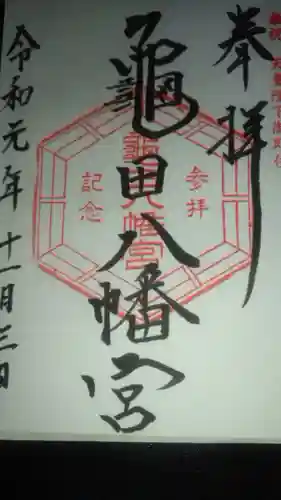 奉拝
亀田八幡宮
令和元年十一月三日
参拝
記念
亀田八幡宮